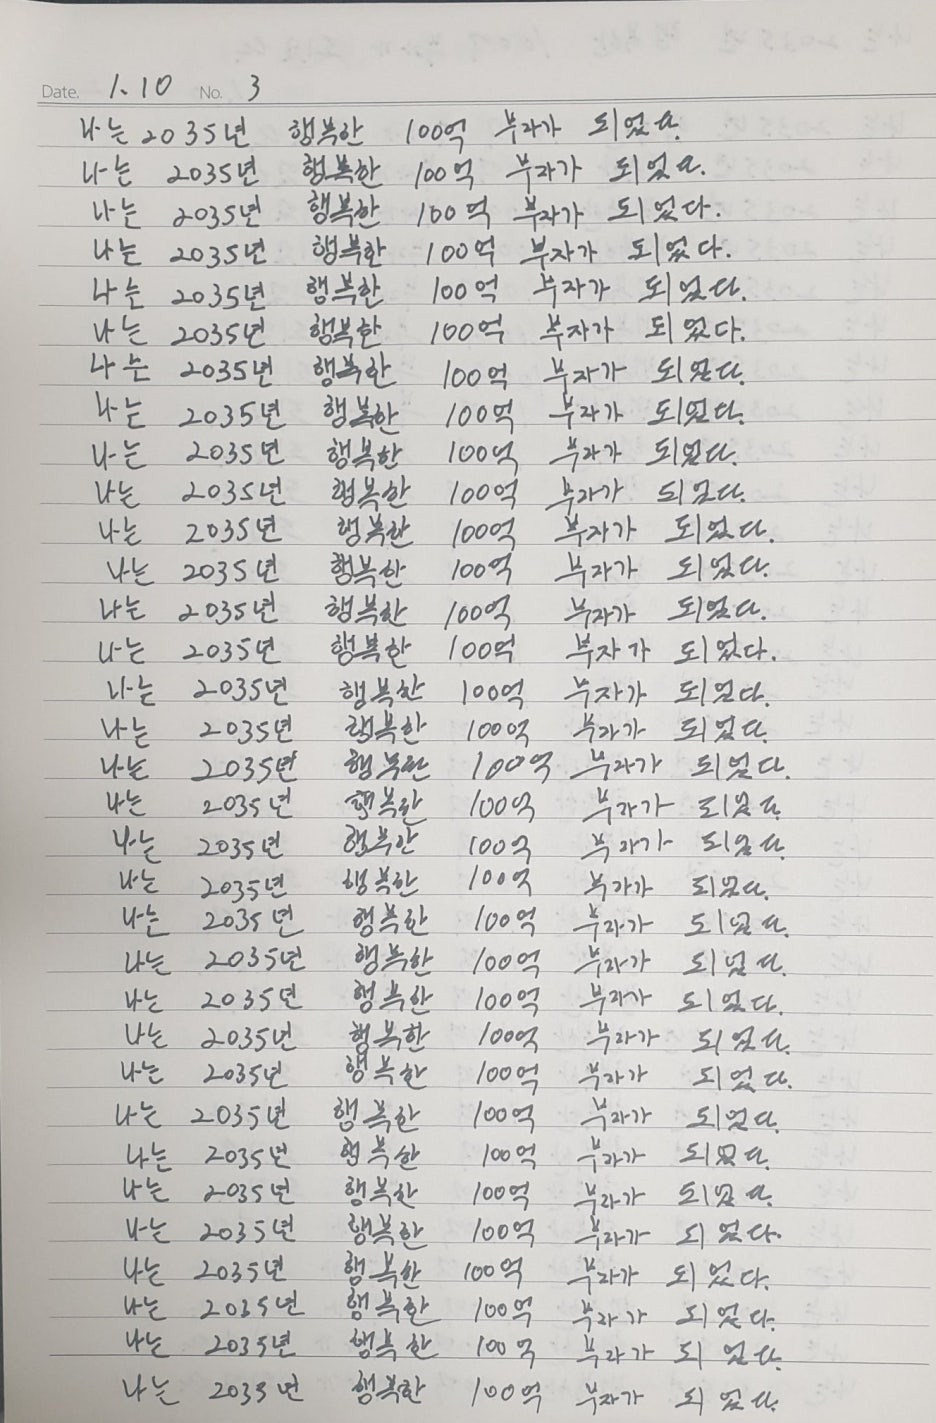 Date. 1.10 No. 3
나는 2035년 행복한 100억 부자가 되었다.
나는 2035년 행복한 100억 부자가 되었다.
나는 2035년 행복한 100억 부자가 되었다.
나는 2035년 행복한 100억 부자가 되었다.
나는 2035년 행복한 100억 부자가 되었다.
나는 2035년 행복한 100억 부자가 되었다.
나는 2035년 행복한 100억 부자가 되었다.
나는 2035년 행복한 100억 부자가 되었다.
나는 2035년 행복한 100억 부자가 되었다.
나는 2035년 행복한 100억 부자가 되었다.
나는 2035년 행복한 100억 부자가 되었다.
나는 2035년 행복한 100억 부자가 되었다.
나는 2035년 행복한 100억 부자가 되었다.
나는 2035년 행복한 100억 부자가 되었다.
나는 2035년 행복한 100억 부자가 되었다.
나는 2035년 행복한 100억 부자가 되었다.
나는 2035년 행복한 100억 부자가 되었다.
나는 2035년 행복한 100억 부자가 되었다.
나는 2035년 행복한 100억 부자가 되었다.
나는 2035년 행복한 100억 부자가 되었다.
나는 2035년 행복한 100억 부자가 되었다.
나는 2035년 행복한 100억 부자가 되었다.
나는 2035년 행복한 100억 부자가 되었다.
나는 2035년 행복한 100억 부자가 되었다.
나는 2035년 행복한 100억 부자가 되었다.
나는 2035년 행복한 100억 부자가 되었다.
나는 2035년 행복한 100억 부자가 되었다.
나는 2035년 행복한 100억 부자가 되었다.
나는 2035년 행복한 100억 부자가 되었다.
나는 2035년 행복한 100억 부자가 되었다.
나는 2035년 행복한 100억 부자가 되었다.
나는 2035년 행복한 100억 부자가 되었다.
나는 2035년 행복한 100억 부자가 되었다.